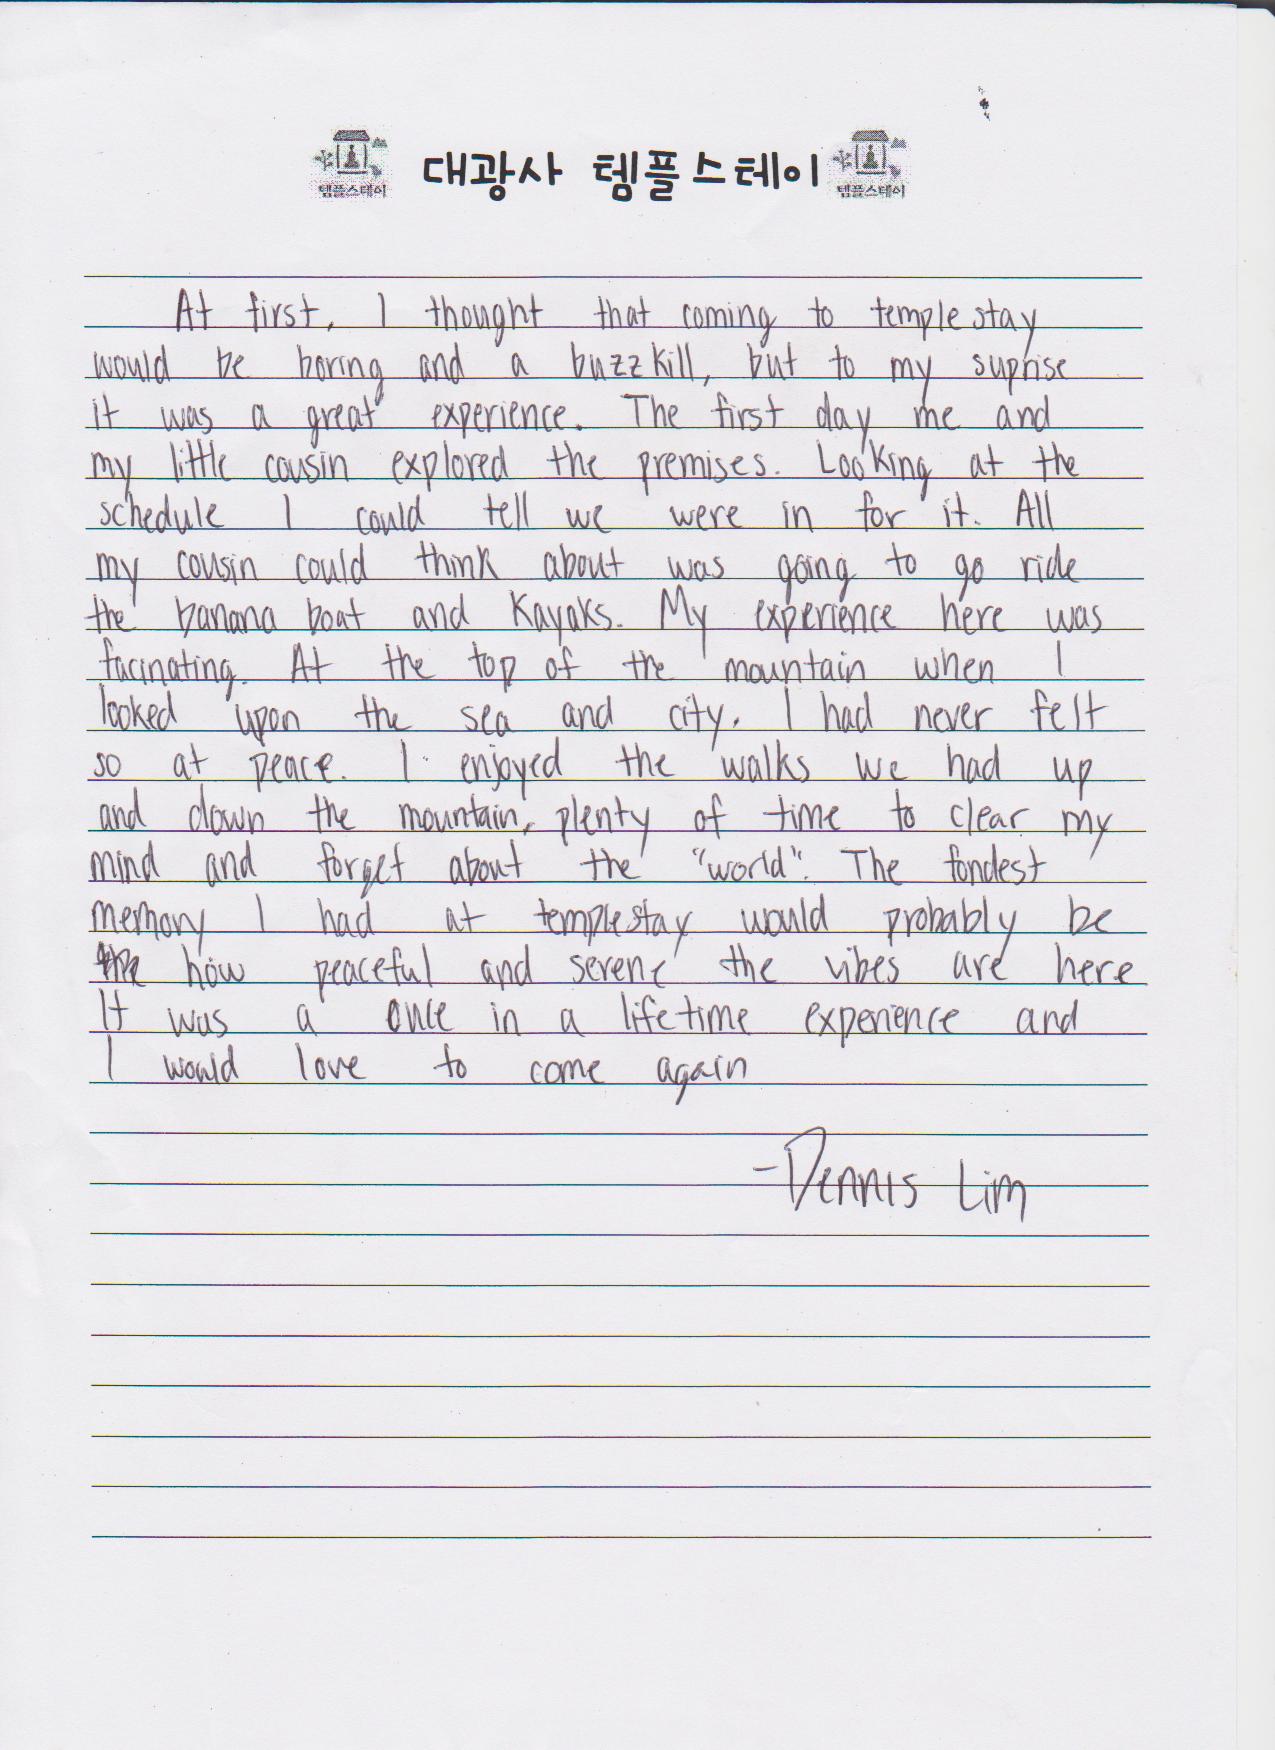 대광사 템플스테이
템플스테이
템플스테이
At first, I thought that coming to temple stay
would be boring and a buzzkill, but to my suprise
it was a great experience. The first day me and
my little cousin explored the premises. Looking at the
schedule I could tell we were in for it. All
my cousin could think about was going to go ride
the banana boat and Kayaks. My experience here was
facinating. At the top of the mountain when I
looked upon the sea and city, I had never felt
so at peace. I enjoyed the walks we had up
and down the mountain, plenty of time to clear my
mind and forget about the "world". The fondest
memory I had at temple stay would probably be
how peaceful and serene the vibes are here
It was a once in a lifetime experience and
I would love to come again
-Dennis Lim